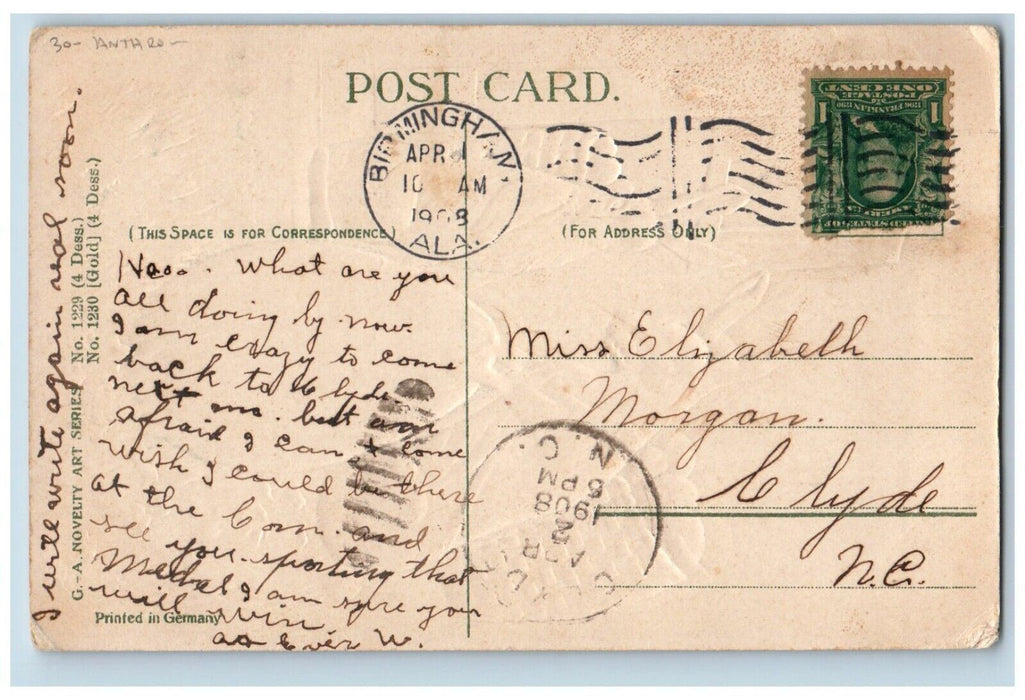 30- ANTH 20 -
POST CARD.
BIRMINGHAM,
APR 1
10 AM
1908
ALA.
1 1
ONE CENT
POSTAGE
FRANKLIN
(THIS SPACE IS FOR CORRESPONDENCE)
(FOR ADDRESS ONLY)
What are you
all doing by now.
I am crazy to come
back to Clyde
next mo. but am
afraid I can't come
wish I could be there
at the Com. and
see you sporting that
Medal I am sure you
will win
as Ever W.
I will write again real soon.
G.-A. NOVELTY ART SERIES No. 1229 (4 Dess.)
No. 1230 [Gold] (4 Dess.)
Printed in Germany
Miss Elizabeth
Morgan.
Clyde
N.C.
CLYDE
APR
2
5 PM
1908
N.C.